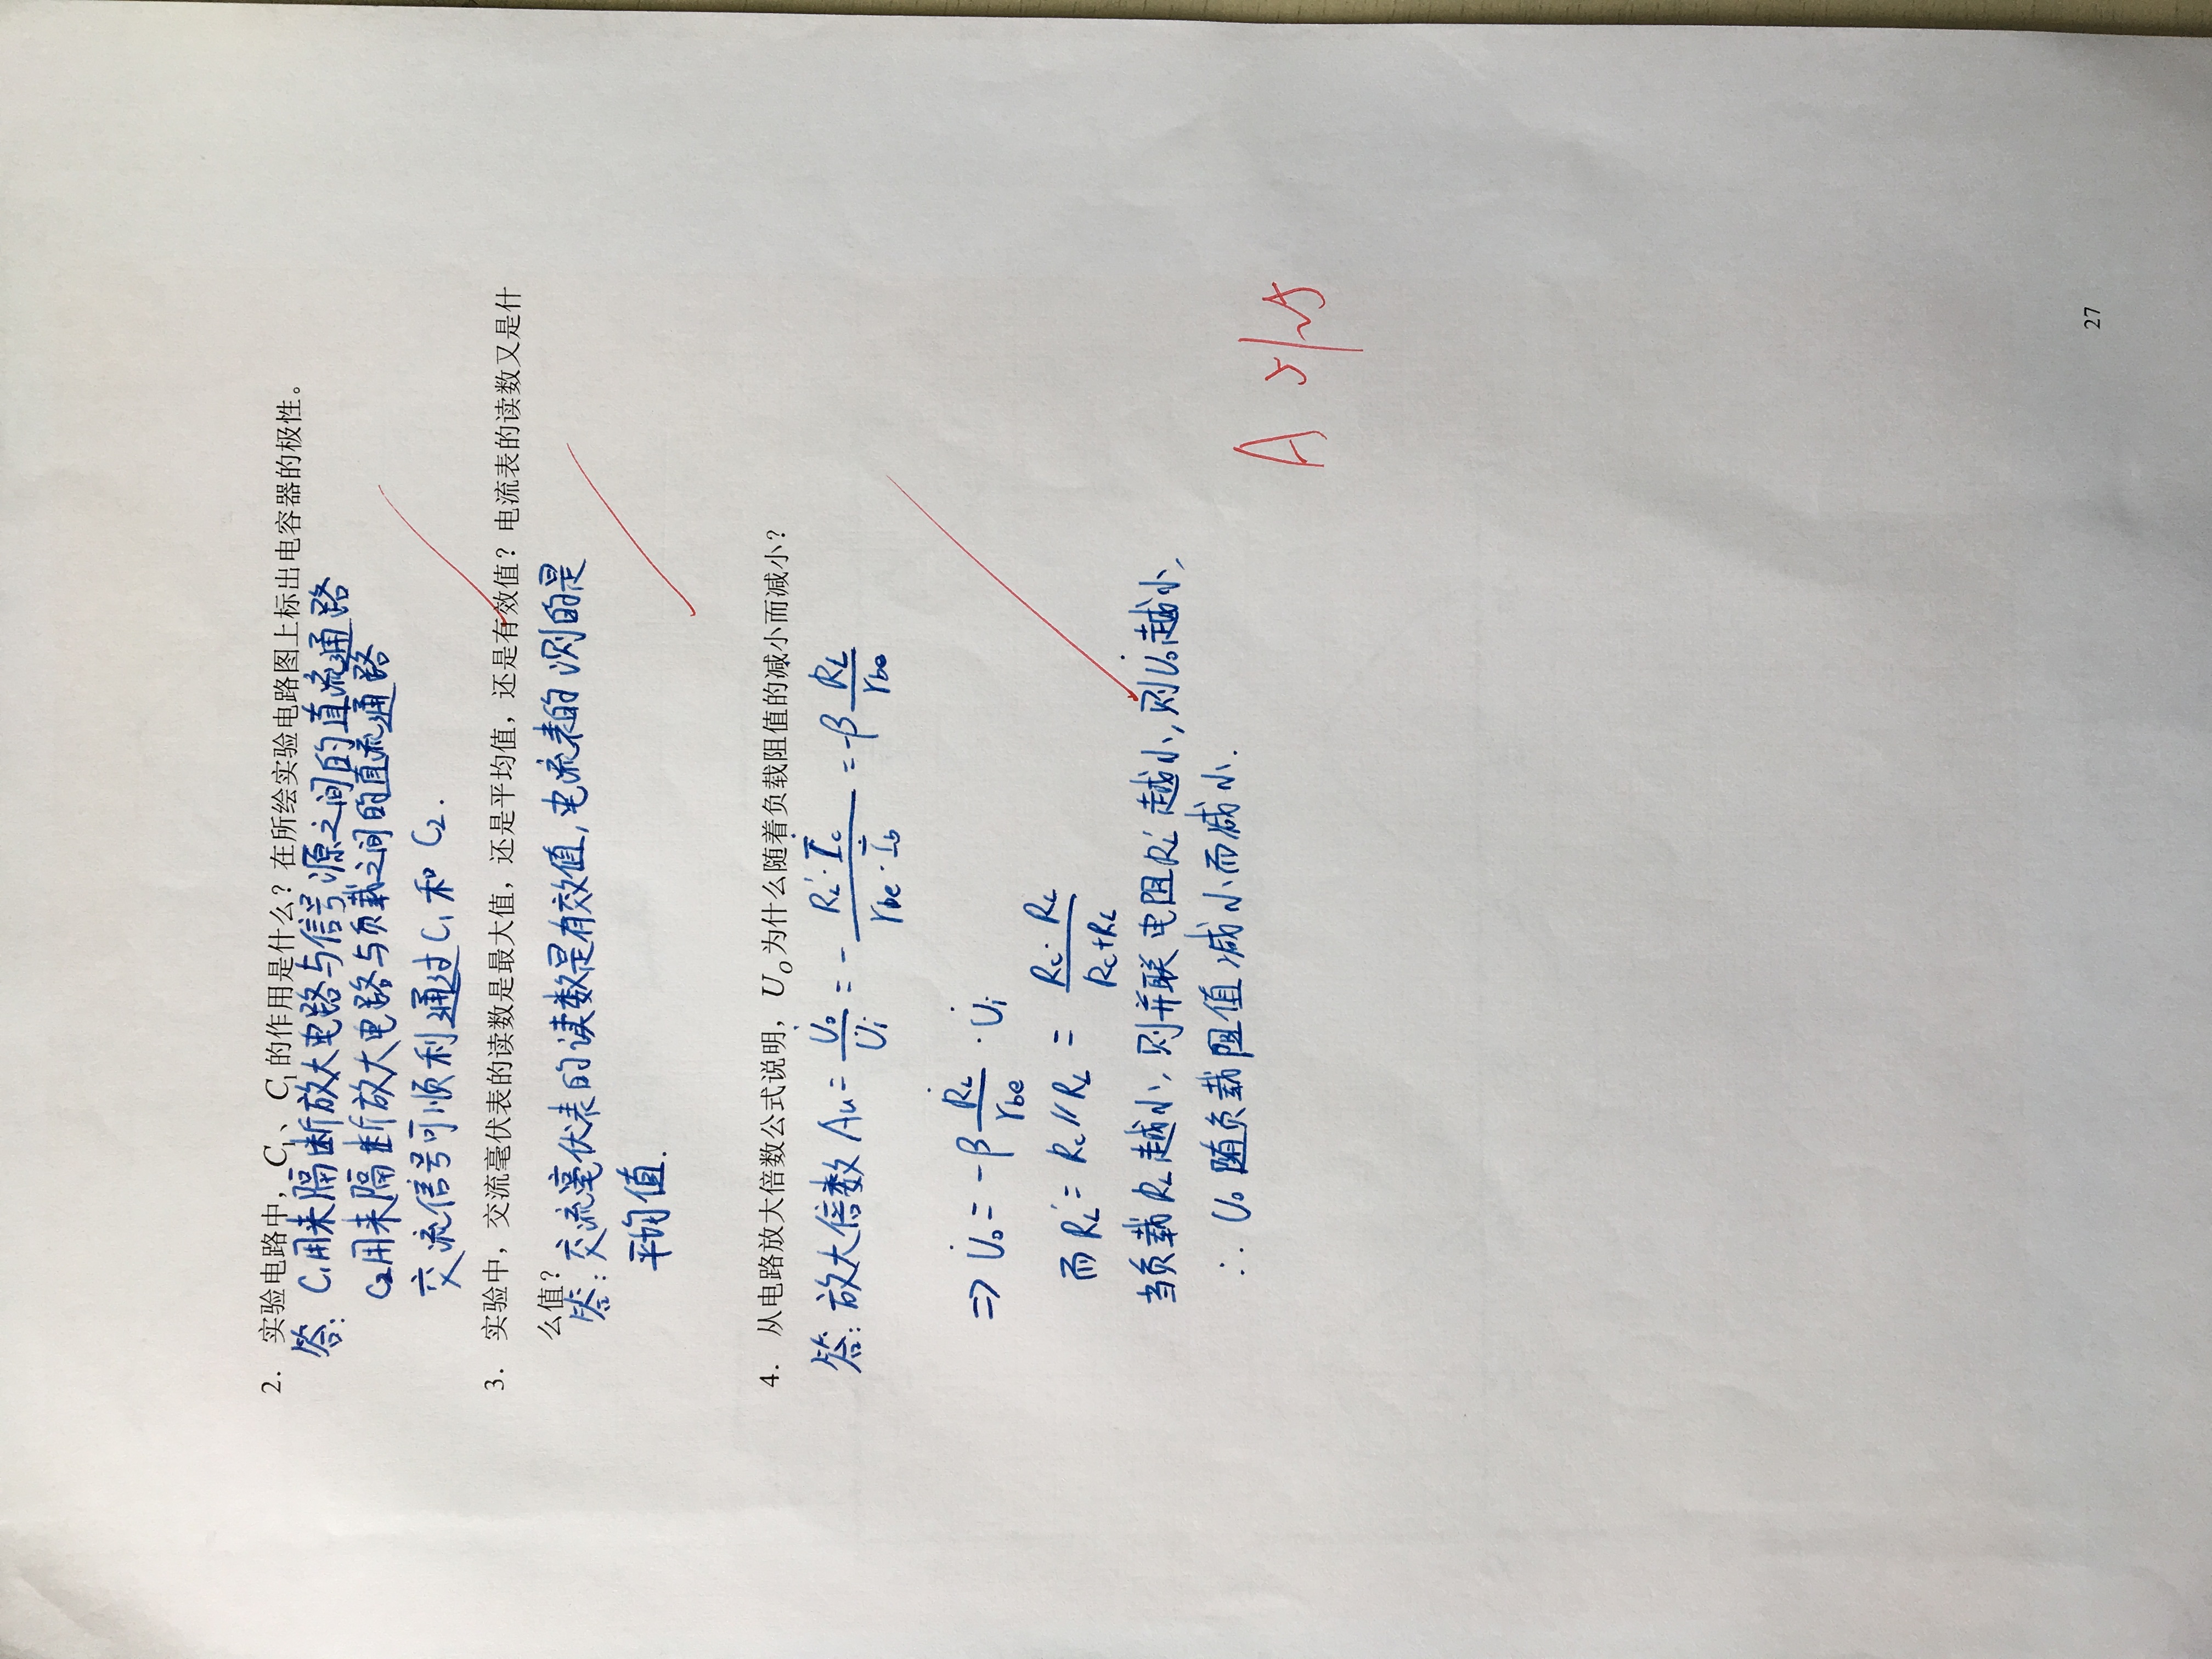 2. 实验电路中，C₁、C₁的作用是什么？在所绘实验电路图上标出电容器的极性。
答：C₁用来隔断放大电路与信号源之间的直流通路
C₂用来隔断放大电路与负载之间的直流通路
交流信号可顺利通过C₁和C₂.
3. 实验中，交流毫伏表的读数是最大值，还是平均值，还是有效值？电流表的读数又是什
么值？
答：交流毫伏表的读数是有效值，电流表的测的是
平均值.
4. 从电路放大倍数公式说明，U_O为什么随着负载阻值的减小而减小？
答：放大倍数 Au = U̇o/U̇i = - RL'·İc / rbe·İb = -β RL/rbe
⇒ U̇o = -β ṘL/rbe · U̇i
而 RL' = Rc // RL = Rc·RL / Rc+RL
当负载RL越小，则并联电阻RL'越小，则U̇o越小，
∴ Uo 随负载阻值减小而减小.
A 5/25
27